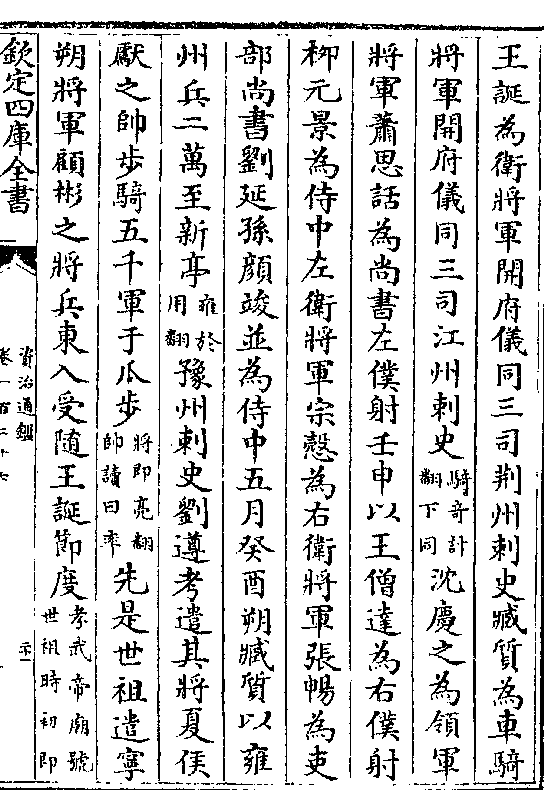 王誕為衛將軍開府儀同三司荆州刺史臧質為車騎
將軍開府儀同三司江州刺史騎奇計翻下同沈慶之為領軍
將軍蕭思話為尚書左僕射壬申以王僧達為右僕射
柳元景為侍中左衛將軍宗慤為右衛將軍張暢為吏
部尚書劉延孫顔竣並為侍中五月癸酉朔臧質以雍
州兵二萬至新亭雍於用翻豫州刺史劉遵考遣其將夏侯
獻之帥步騎五千軍于瓜步將即亮翻帥讀曰率先是世祖遣寧
朔將軍顧彬之將兵東入受隨王誕節度孝武帝廟號世祖時初即
欽定四庫全書
資治通鑑
卷一百二十七